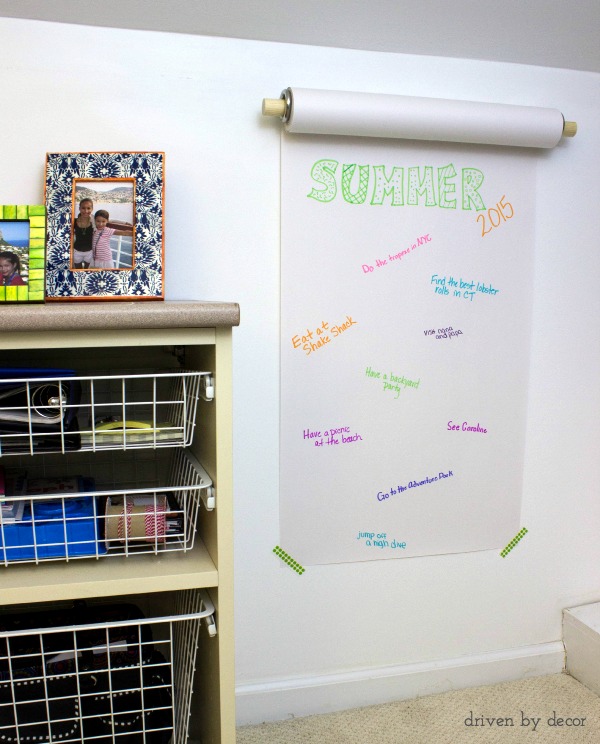 SUMMER
2015
Do the trapeze in NYC
Find the best lobster
rolls in CT
Eat at
Shake Shack
Visit nana
and papa
Have a backyard
party
Have a picnic
at the beach
See Caroline
Go to the Adventure Park
jump off
a high dive
driven by decor